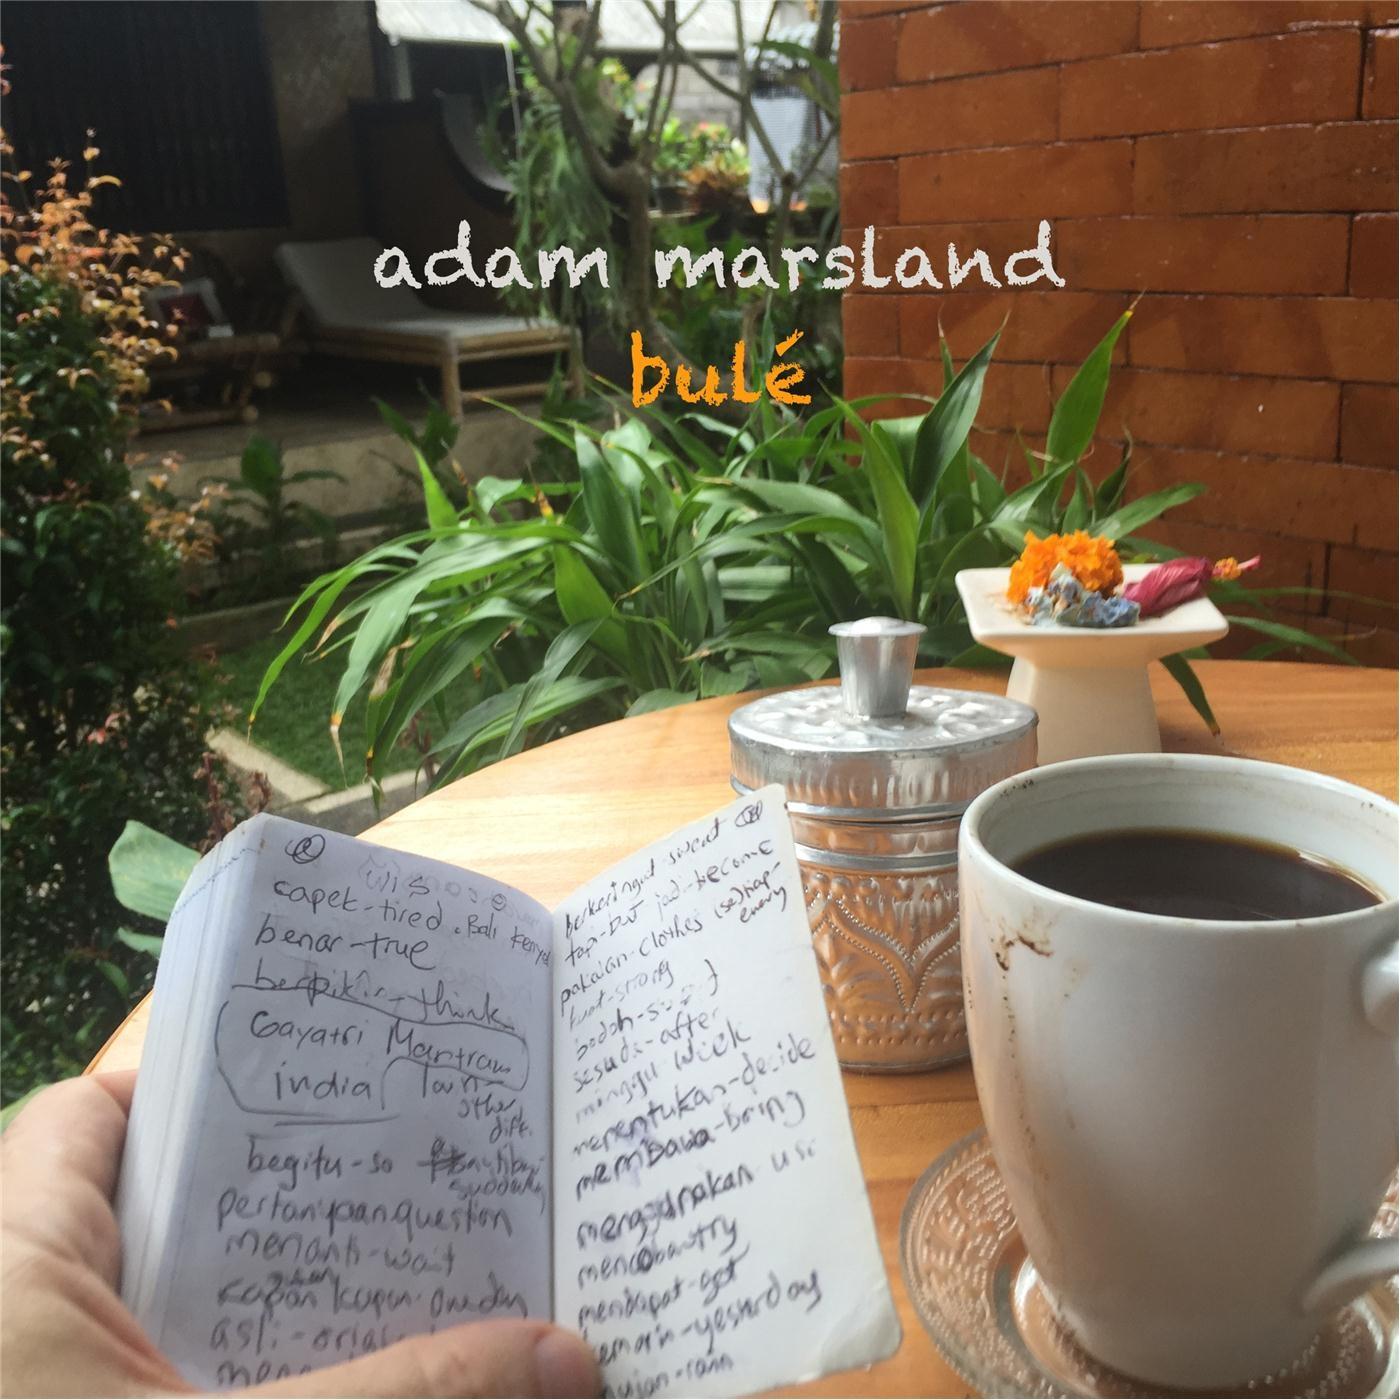 adam marsland
bulé
capek-tired
benar-true
berpikir-think
Gayatri Mantram
india
lain-
other
begitu-so
suddenly
pertanyaan question
menanti-wait
kapan kapan-one day
asli-
berkeringat sweat
tapi-but jadi-become
pakaian-clothes (se)tiap-
every
kuat-strong
bodoh-
sesuda-after
minggu-week
menentukan-decide
membawa-bring
menggunakan use
mencoba-try
mendapat-get
kemarin-yesterday
hujan-rain